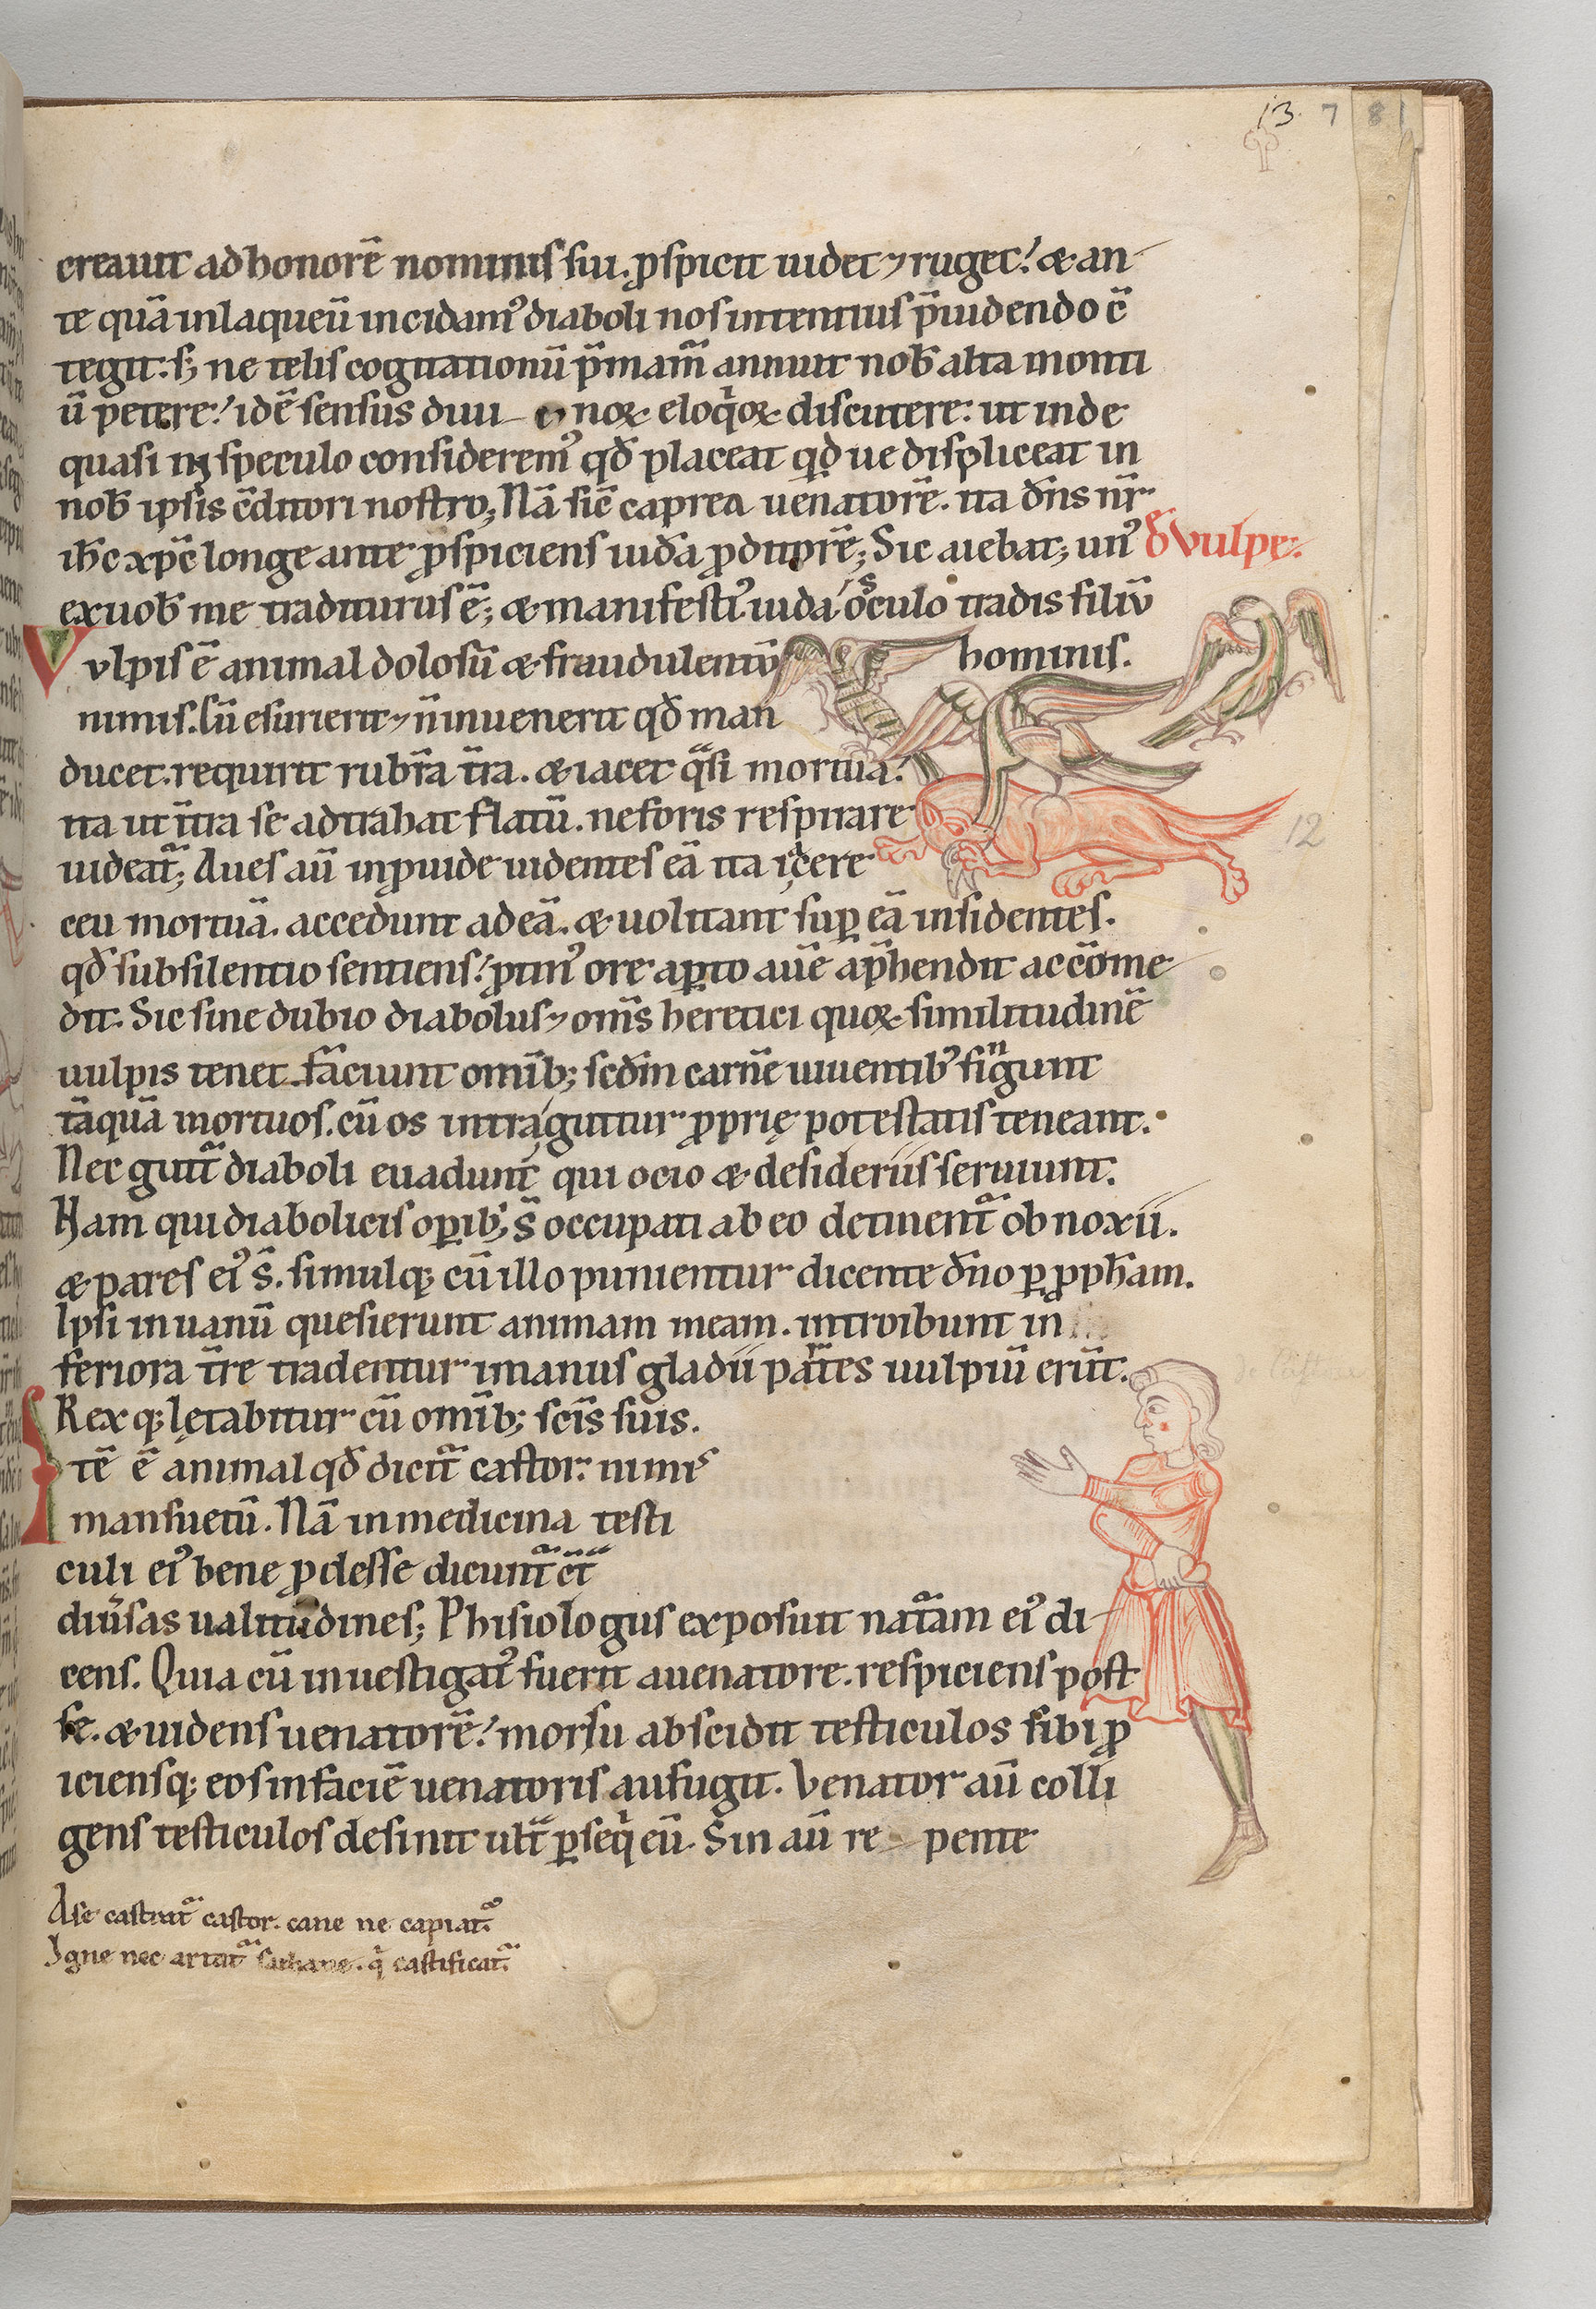 13 7 81
creauit ad honorē nominis sui. ꝓspicit uidet ⁊ ruget? & an
te quā in laqueū incidamꝰ diaboli nos intentius p̄uidendo ꝯ̄
tegit: s; ne telis cogitationū p̄mam̄ annuit nob̄ alta monti
ū petere? idē sensus diui noꝝ eloq̇oꝝ discutere: ut inde
quasi in speculo consideremꝰ qđ placeat qđ ue displiceat in
nob̄ ipsis c̄ditori nostro; Nā sic̄ caprea uenatorē. ita dn̄s nr̄
ih̄c xp̄c longe ante ꝓspiciens iuđa ꝓditorē; Sic aiebat; unꝰ đ vulpe.
ex uob̄ me traditurus ē; & manifestiꝰ. iuda osculo tradis filiū
hominis.
Vvlpis ē animal dolosū & fraudulentū
nimis. Cū esurierit ⁊ n̄ inuenerit qđ man
ducet. requirit rubrā tr̄a. & iacet qͣsi mortua.
ita ut ītra se adtrahat flatū. ne foris respirare
uideatͣ; Aues aū inꝓuide uidentes eā ita iacere
ceu mortuā. accedunt ad eā. & uolitant suꝑ eā insidentes.
qđ sub silentio sentiens? ꝓtinꝰ ore aꝑto auē ap̄hendit ac cōme
dit. Sic sine dubio diabolus ⁊ om̄s heretici quoꝝ similitudinē
uulpis tenet faciunt omīb; scđm carnē uiuentibꝰ fingunt
tāquā mortuos. cū os intra guttur ꝓprię potestatis teneant.
Nec guttͣ diaboli euadunt qui ocio & desideriis seruiunt.
Nam qui diabolicis oꝑibꝰ s̄ occupati ab eo detinentͣ obnoxii.
& pares eiꝰ s̄. simulq; cū illo punientur dicente dn̄o ꝑ ꝓph̄am.
Ipsi in uanū quesierunt animam meam. introibunt in
feriora tr̄re tradentur imanus gladii partes uulpiū erūt.
Rex q; lętabitur cū omīb; scīs suis.
Itē ē animal qđ dicitͣ castor: nimis
mansuetū. Nā in medicina testi
culi eiꝰ bene ꝓdesse dicuntͣ ꝯt̄
diūsas ualitudines; Phisiologus exposuit natͣam eiꝰ di
cens. Quia cū inuestigatꝰ fuerit a uenatore. respiciens post
se. & uidens uenatorē? morsu abscidit testiculos sibi ꝓ
iciensq; eos in faciē uenatoris aufugit. Venator aū colli
gens testiculos desinit ult̄ ꝑseq̇ eū. Sin aū re pente
12
A se castratͣ castor. cane ne capiatͣ.
Igne nec artatͣ . q̇ castificatͣ